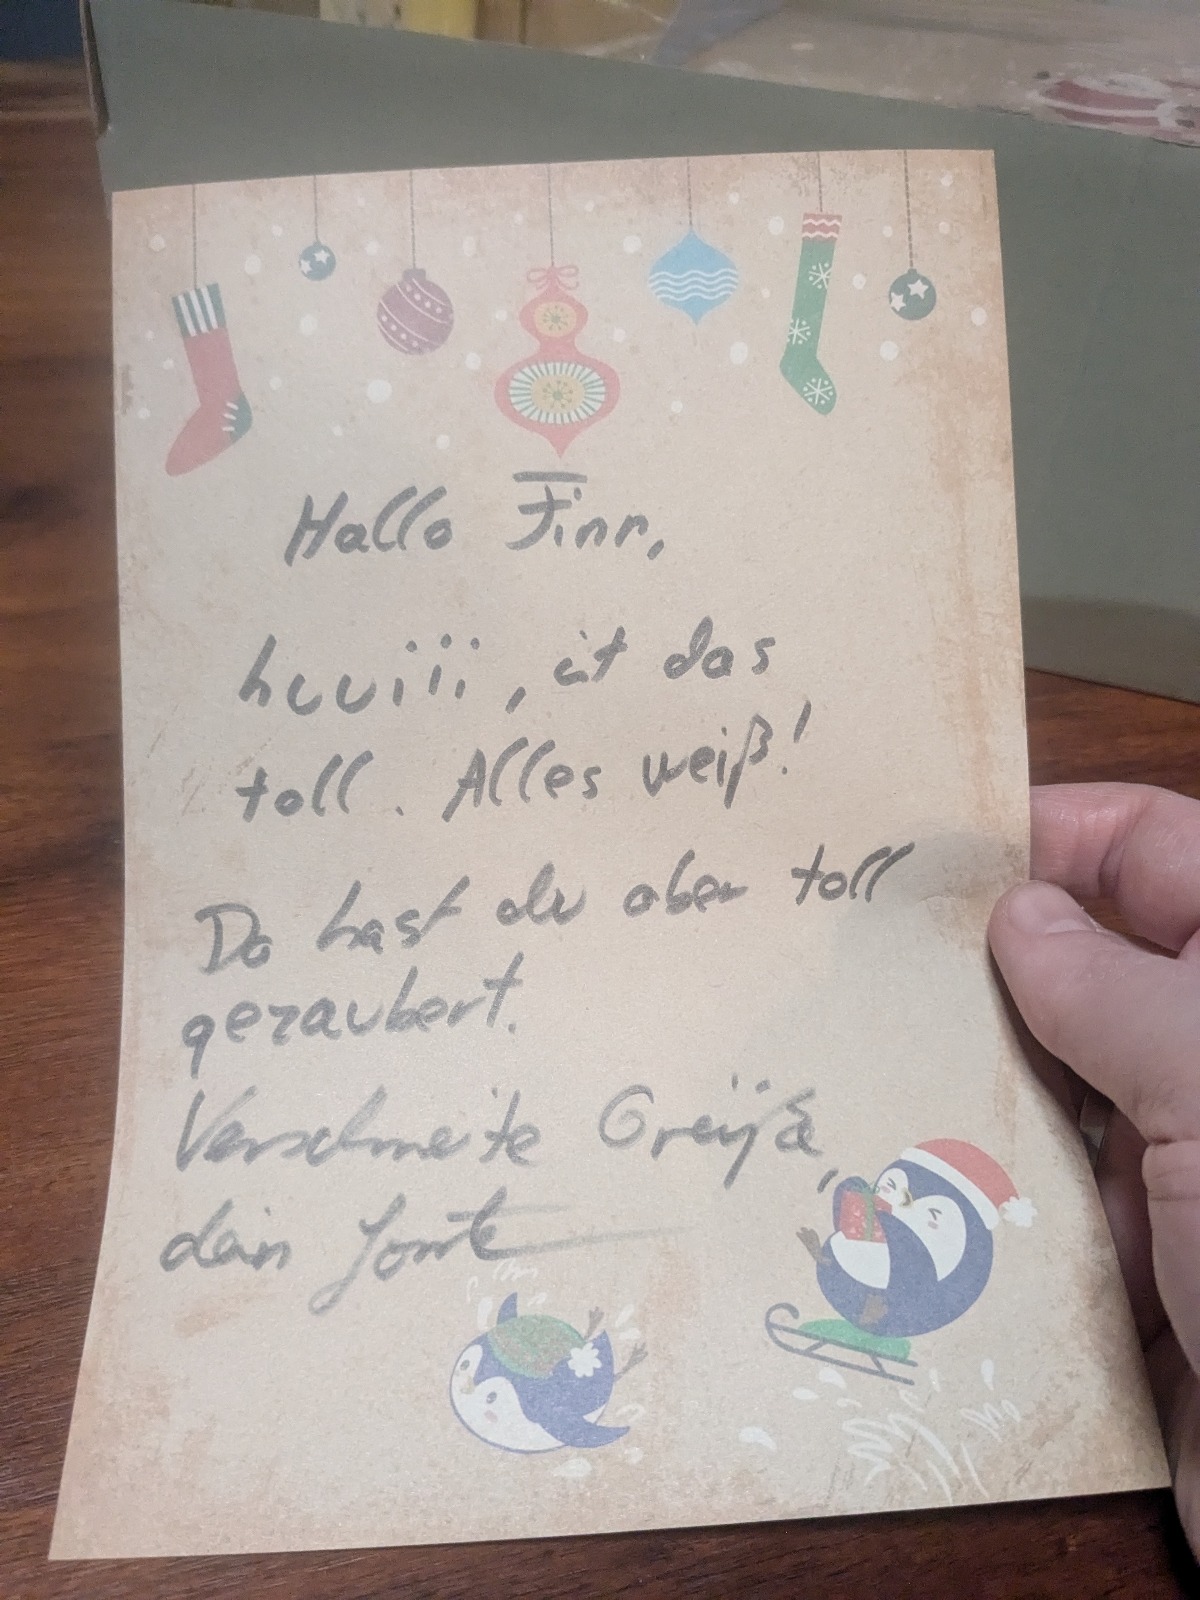 Hallo Finn,
huuiii, ist das
toll. Alles weiß!
Da hast du aber toll
gezaubert.
Verschneite Grüße,
dein Jonte